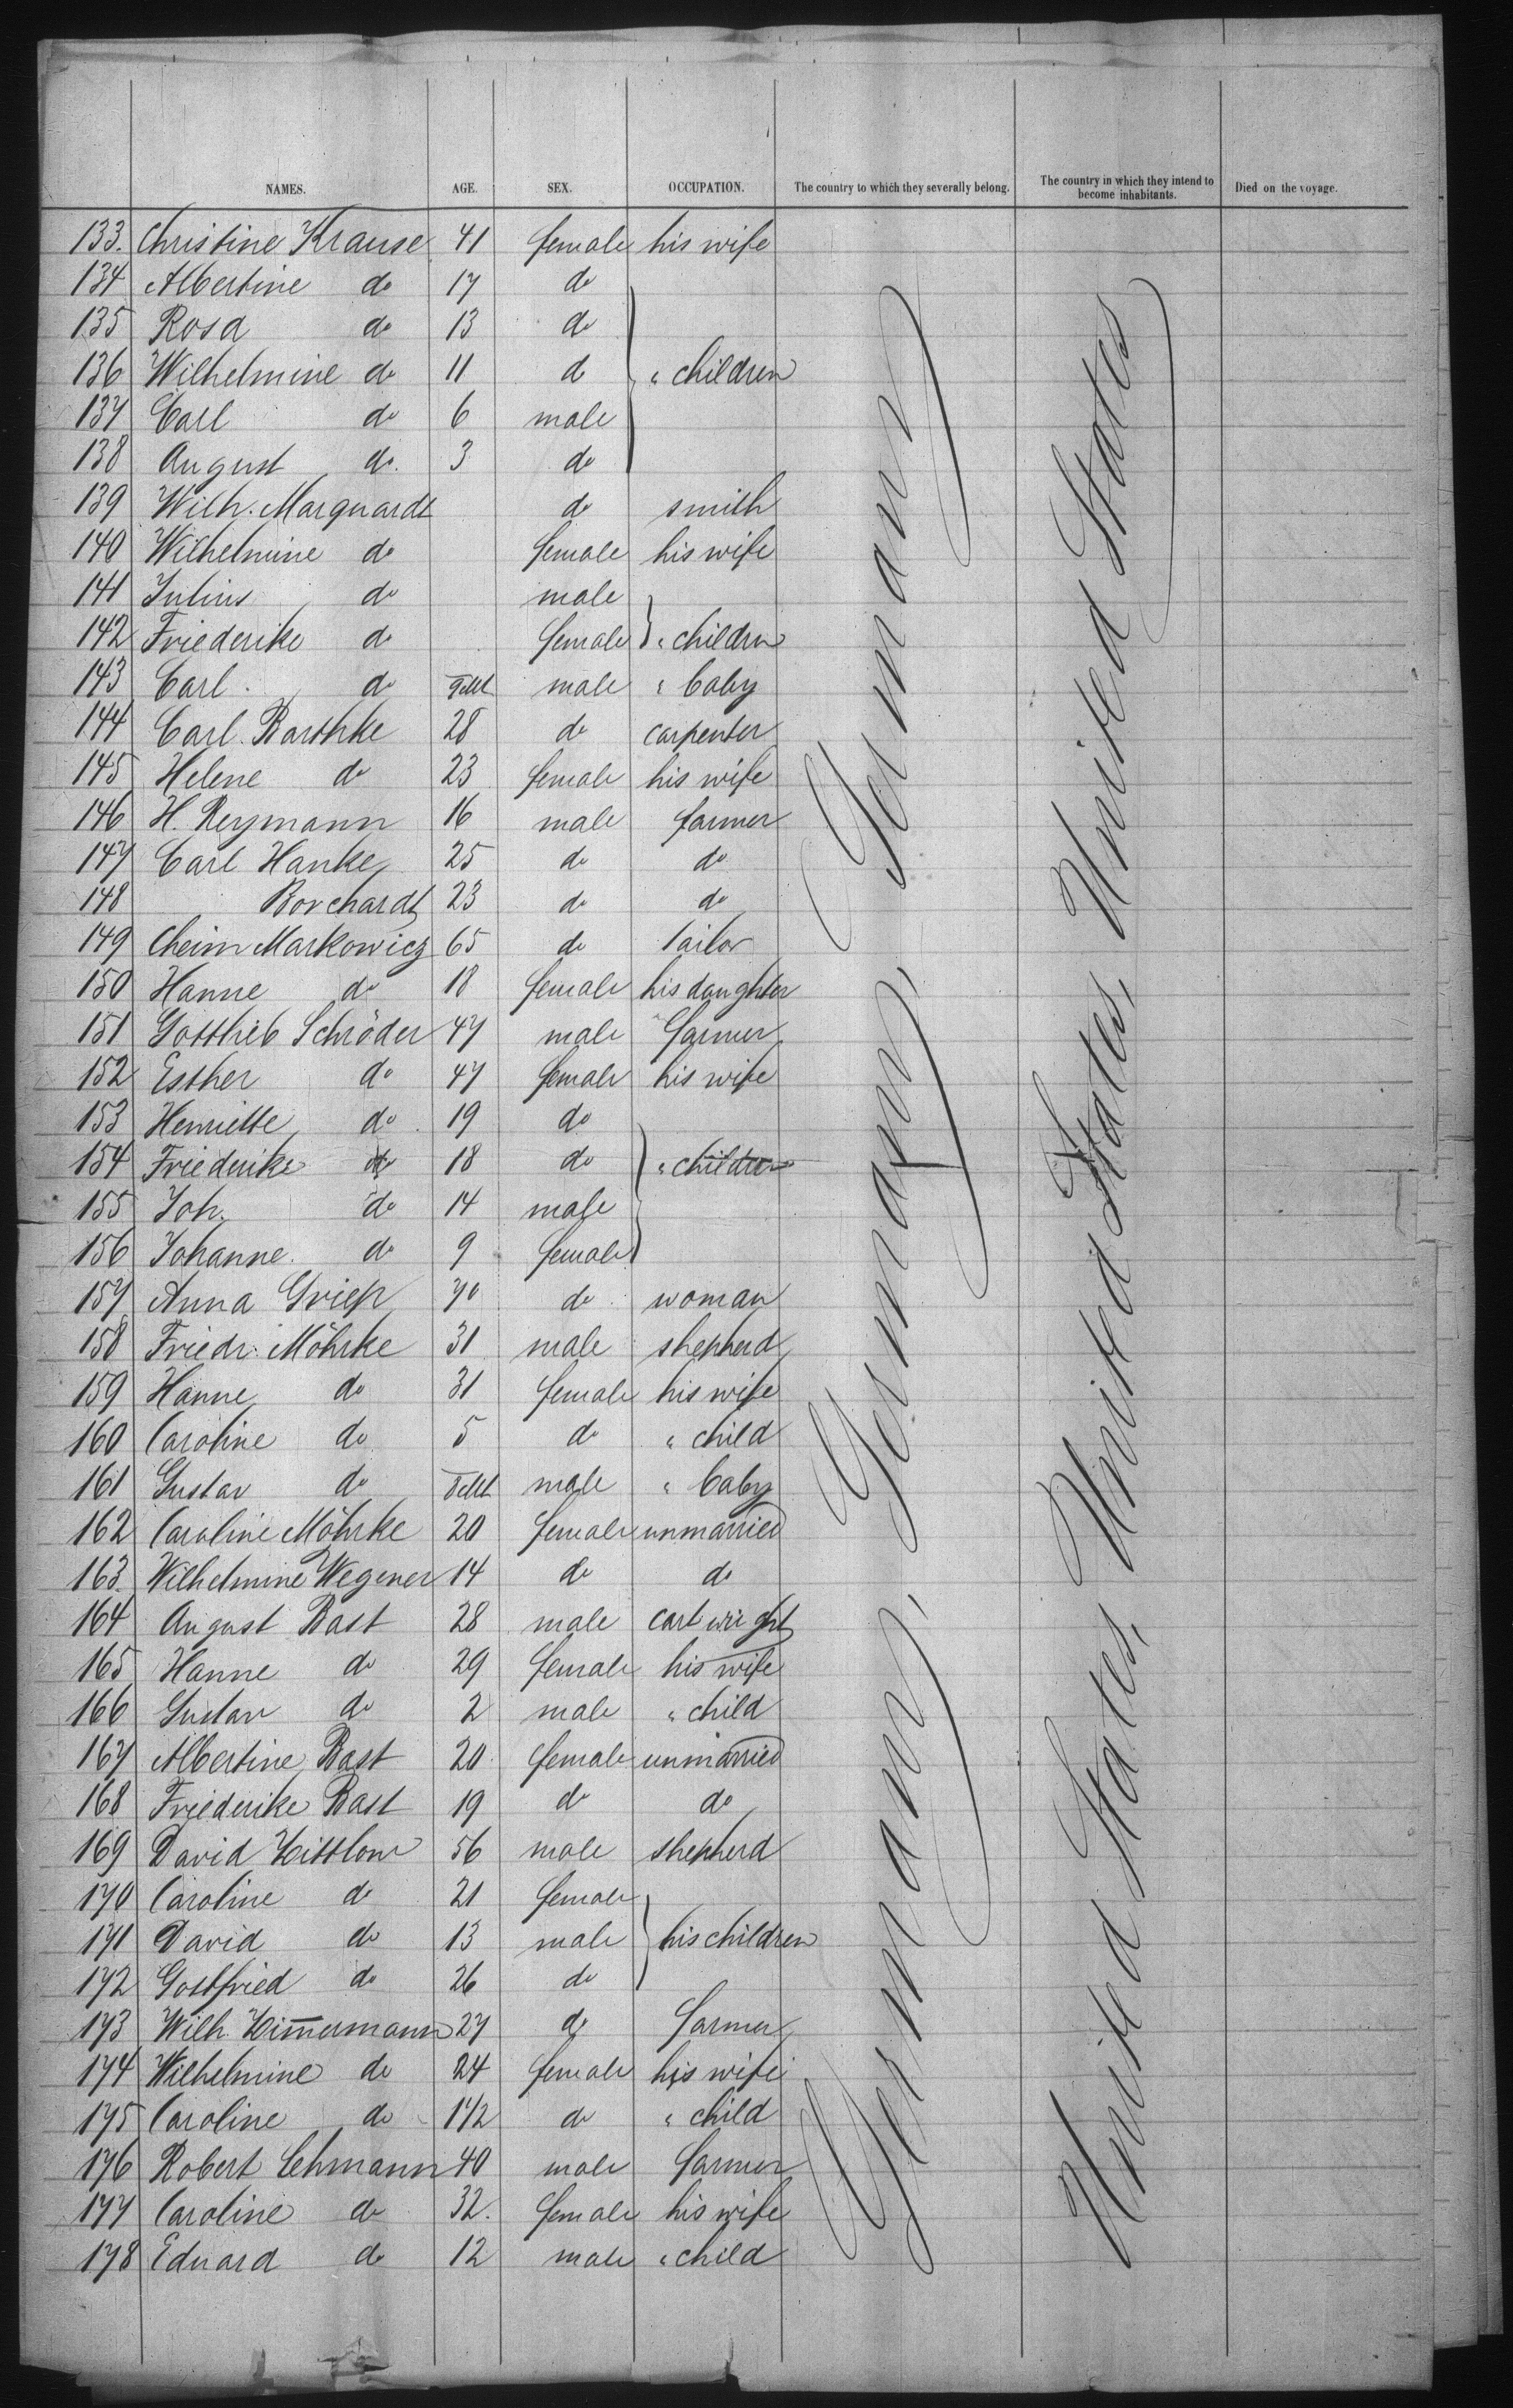 NAMES. AGE. SEX. OCCUPATION. The country to which they severally belong. The country in which they intend to become inhabitants. Died on the voyage.
133. Christine Krause 41 female his wife
134 Albertine do 17 do
135 Rosa do 13 do
136 Wilhelmine do 11 do " children
137 Carl do 6 male
138 August do. 3 do
139 Wilh. Marquardt do smith
140 Wilhelmine do female his wife
141 Julius do male
142 Friederike do female " children
143 Carl do male " baby
144 Carl Barthke 28 do carpenter
145 Helene do 23 female his wife
146 H. Regmann 16 male farmer
147 Carl Hanke 25 do do
148 Borchardt 23 do do
149 Cheim Markowicz 65 do tailor
150 Hanne do 18 female his daughter
151 Gottlieb Schröder 47 male farmer
152 Esther do 47 female his wife
153 Henriette do. 19 do
154 Friederike do 18 do " children
155 Joh. do 14 male
156 Johanne do 9 female
157 Anna Griep 70 do woman
158 Friedr. Möhrke 31 male shepherd
159 Hanne do 31 female his wife
160 Caroline do 5 do " child
161 Gustav do male " baby
162 Caroline Möhrke 20 female unmarried
163. Wilhelmine Wegener 14 do do
164 August Bast 28 male cartwright
165 Hanne do 29 female his wife
166 Gustav do 2 male " child
167 Albertine Bast 20 female unmarried
168 Friederike Bast 19 do do
169 David Zittlow 56 male shepherd
170 Caroline do 21 female
171 David do 13 male his children
172 Gottfried do 26 do
173 Wilh. Zim̅ermann 27 do farmer
174 Wilhelmine do 24 female his wife
175 Caroline do 1 1/2 do " child
176 Robert Lehmann 40 male farmer
177 Caroline do 32. female his wife
178 Eduard do 12 male " child
Germany, Germany, Germany
United States, United States, United States